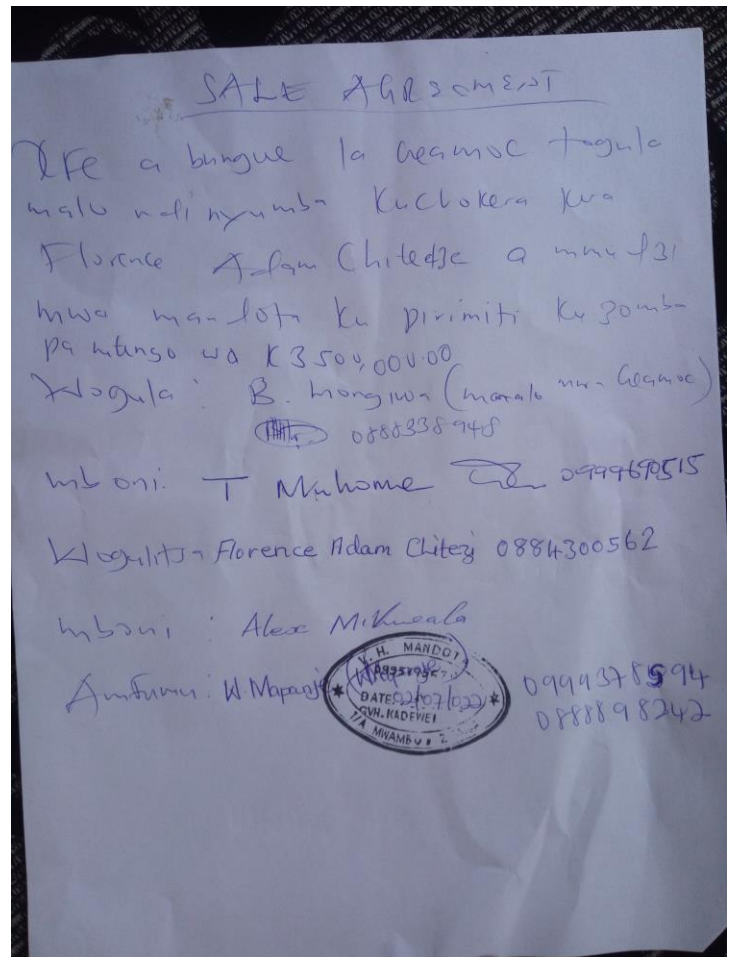 SALE AGREEMENT
Ife a bungwe la Geamoc tagula
malo ndi nyumba Kuchokera kwa
Florence Adam Chitedze a mmudzi
mwa mandota ku pirimiti ku zomba
pa mtengo wa K3500,000.00
Wogula: B. mongiwa (m'malo mwa Geamoc)
0888338948
mboni: T Mkhome 0999690515
Wogulitsa Florence Adam Chitezi 0884300562
mboni: Alex
Amfumu: W. Mapanje 0999378594
0888898242
V. H. MANDOTA
DATE: 02/07/022
GVH. KADEWELE
T/A MWAMBO